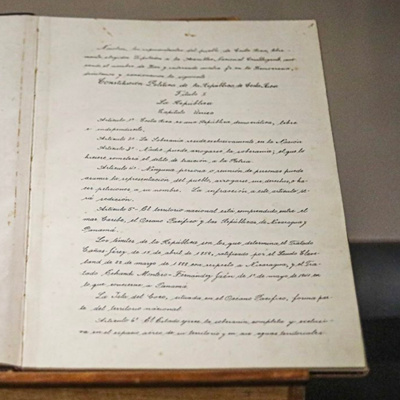 Nosotros, los representantes del pueblo de Costa Rica, libre-
mente elegidos Diputados a la Asamblea Nacional Constituyente, invo-
cando el nombre de Dios y reiterando nuestra fe en la Democracia,
decretamos y sancionamos la siguiente
Constitución Política de la República de Costa Rica
Título I
La República
Capítulo Único
Artículo 1º- Costa Rica es una República democrática, libre
e independiente.
Artículo 2º- La Soberanía reside exclusivamente en la Nación.
Artículo 3º- Nadie puede arrogarse la soberanía; el que lo
hiciere cometerá el delito de traición a la Patria.
Artículo 4º- Ninguna persona o reunión de personas puede
asumir la representación del pueblo, arrogarse sus derechos, o ha-
cer peticiones a su nombre. La infracción a este artículo se-
rá sedición.
Artículo 5º- El territorio nacional está comprendido entre el
mar Caribe, el Océano Pacífico y las Repúblicas de Nicaragua y
Panamá.
Los límites de la República son los que determina el Tratado
Cañas-Jerez de 15 de abril de 1858, ratificado por el Laudo Cleve-
land de 22 de marzo de 1888, con respecto a Nicaragua, y el Tra-
tado Echandi Montero-Fernández Jaén de 1º de mayo de 1941 en
lo que concierne a Panamá.
La Isla del Coco, situada en el Océano Pacífico, forma par-
te del territorio nacional.
Artículo 6º- El Estado ejerce la soberanía completa y exclusi-
va en el espacio aéreo de su territorio y en sus aguas territoriales